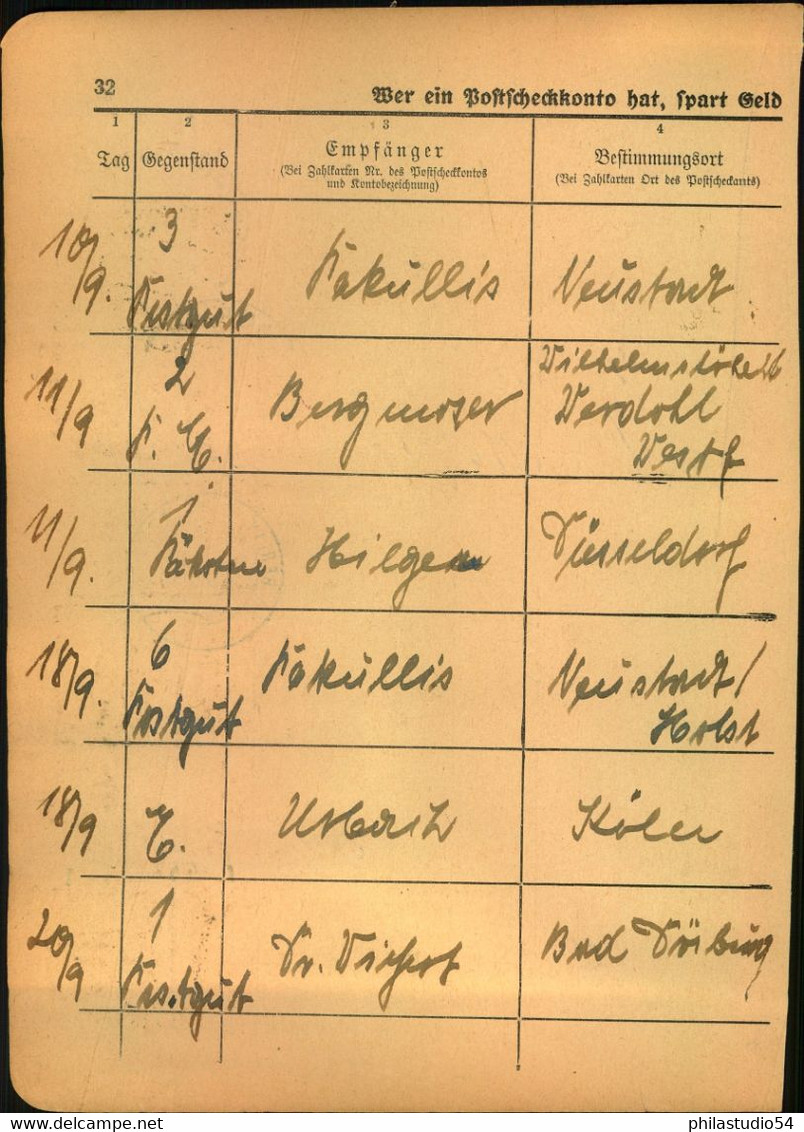 32
Wer ein Postscheckkonto hat, spart Geld
1 2 3 4
Tag Gegenstand Empfänger Bestimmungsort
(Bei Zahlkarten Nr. des Postscheckkontos
und Kontobezeichnung)
(Bei Zahlkarten Ort des Postscheckamts)
10/9. 3
Postgut Fakullis Neustadt
11/9 2
Bergmoser
Werdohl
Westf
11/9. 1.
Hilger Düsseldorf
18/9. 6
Postgut Fakullis Neustadt/
Holst
18/9 E. Urbach Köln
20/9 1
Postgut Dr. Bad Driburg
philastudio54